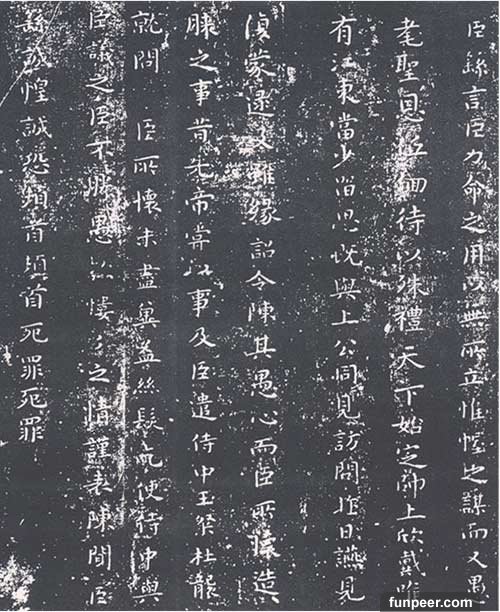 臣繇言臣力命之用以無所立惟幄之謀而又愚
耄聖恩低佪待以殊禮天下始定帥土欣戴唯
有江東當少留思既與上公同見訪問昨日讌見
蒙逮及雖緣詔令陳其愚心而臣所懷造
膝之事昔先帝嘗以事及臣遣侍中王粲杜襲
就問臣所懷未盡冀益絲髮乞使侍中與
臣議之臣不勝愚款悽悽之情謹表陳聞臣
繇誠惶誠恐頓首頓首死罪死罪
funpeer.com